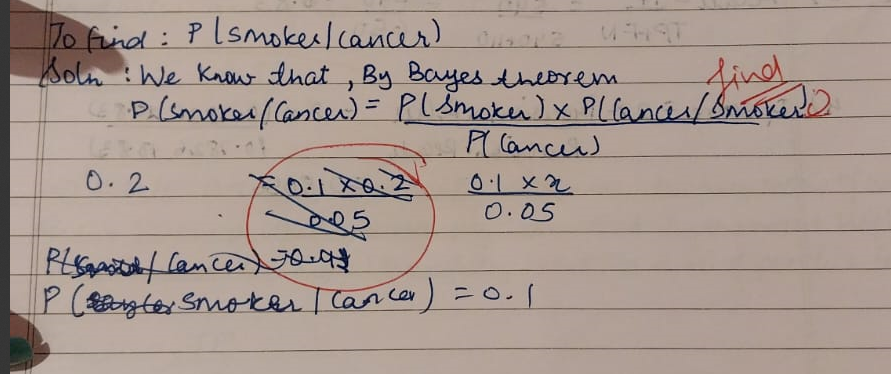 To find : P(smoker/cancer)
Soln : We know that, By Bayes theorem
find
P(smoker/Cancer) = P(Smoker) x P(Cancer/Smoker)
P(Cancer)
0.2 = 0.1 x 0.2 0.1 x x
0.05 0.05
P( / Cancer) =
P( smoker | Cancer) = 0.1